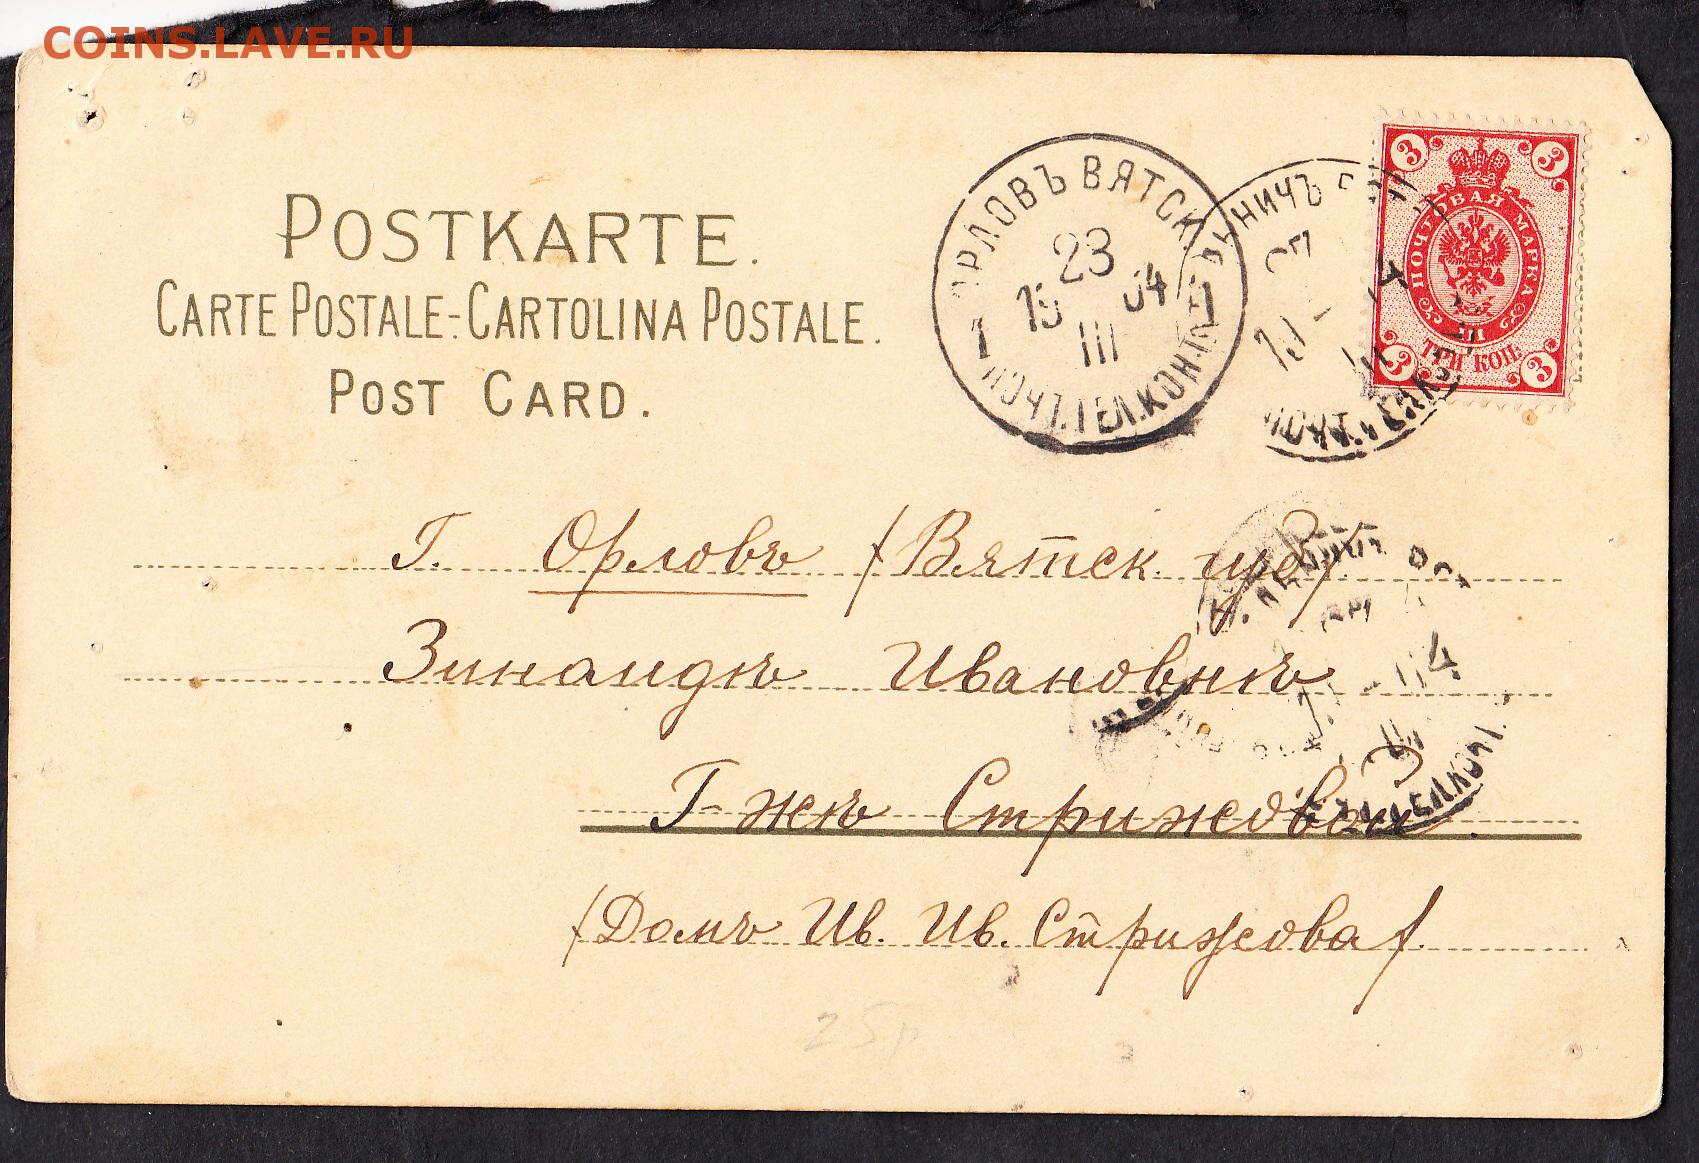 COINS.LAVE.RU
POSTKARTE.
CARTE POSTALE-CARTOLINA POSTALE.
POST CARD.
ОРЛОВЪ ВЯТСК.
23
19 04
III
1 1
ПОЧТ. ТЕЛ. КОНТ.
3 3
ПОЧТОВАЯ МАРКА
ТРИ КОП.
3 3
Г. Орловъ /Вятск. губ/.
Зинаидѣ Ивановнѣ
Г-жѣ Стрижовой.
/Домъ Ив. Ив. Стрижова/.
25р